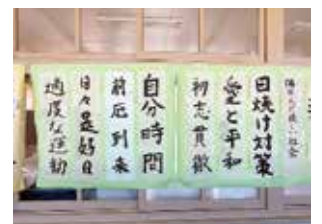 日焼け対策
愛と平和
初志貫徹
自分時間
前厄到来
日々是好日
適度な運動